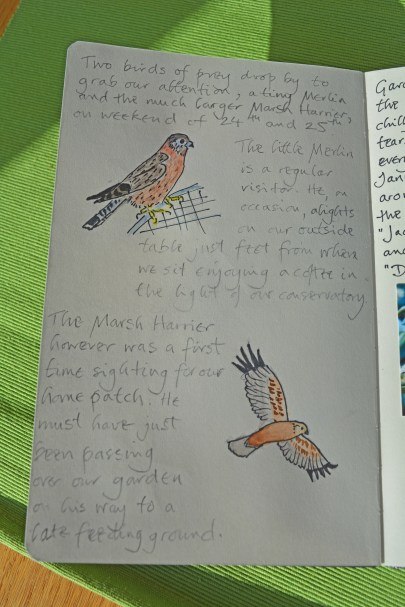 Two birds of prey drop by to
grab our attention, a tiny Merlin
and the much larger Marsh Harrier,
on weekend of 24th and 25th
The little Merlin
is a regular
visitor. He, on
occasion, alights
on our outside
table just feet from where
we sit enjoying a coffee in
the light of our conservatory
The Marsh Harrier
however was a first
time sighting for our
home patch. He
must have just
been passing
over our garden
on his way to a
late feeding ground.
Gard
the
chill
fear
even
Jan
arou
the
"Jac
and
"D